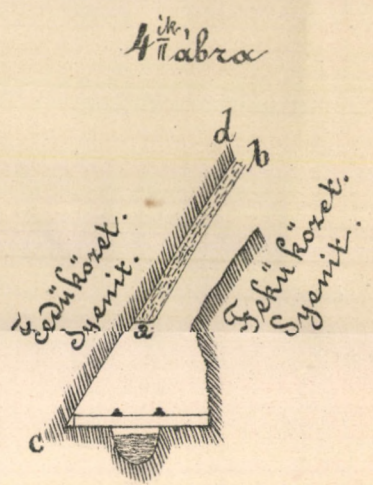 4 ik ábra
d
b
Fedükőzet.
Syenit.
Fekü kőzet.
Syenit.
a
c